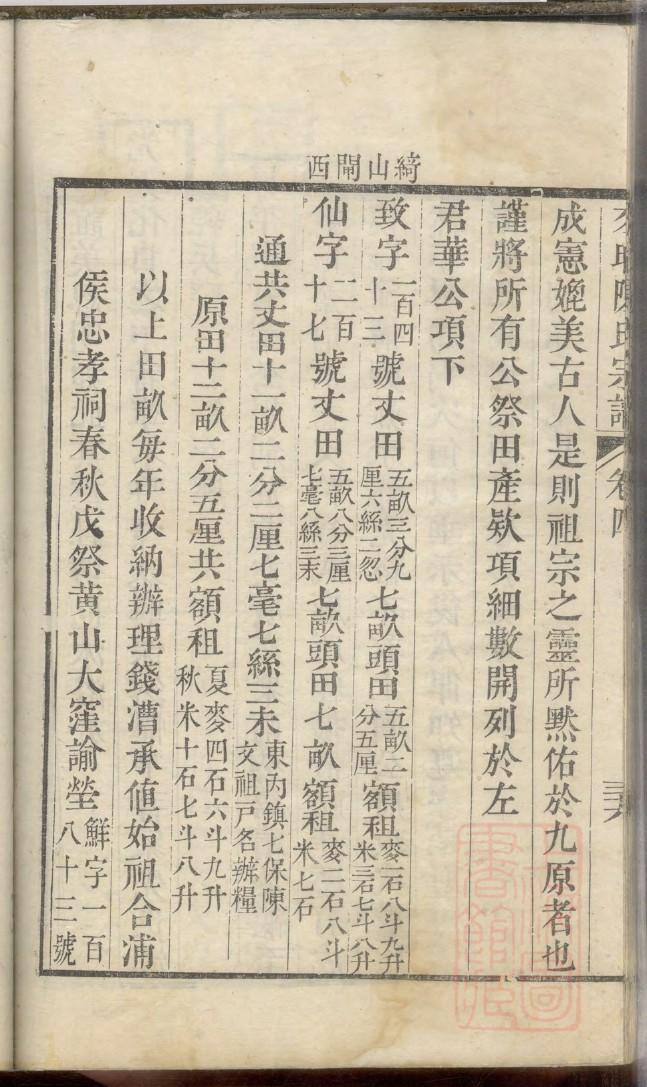 陳氏宗譜 卷四 三六
成憲媲美古人是則祖宗之靈所默佑於九原者也
謹將所有公祭田產欵項細數開列於左
君華公項下
綺山閘西
致字一百四十三號丈田五畝三分九厘六絲二忽七畝頭田五畝二分五厘額租麥一石八斗九升米三石七斗八升
仙字二百十七號丈田五畝八分三厘七毫八絲三末七畝頭田七畝額租麥二石八斗米七石
通共丈田十一畝二分二厘七毫七絲三未東丙鎮七保陳文祖戶名辦糧
原田十二畝二分五厘共額租夏麥四石六斗九升秋米十石七斗八升
以上田畝每年收納辦理錢漕承值始祖合浦
侯忠孝祠春秋戊祭黃山大窪諭塋鮮字一百八十三號